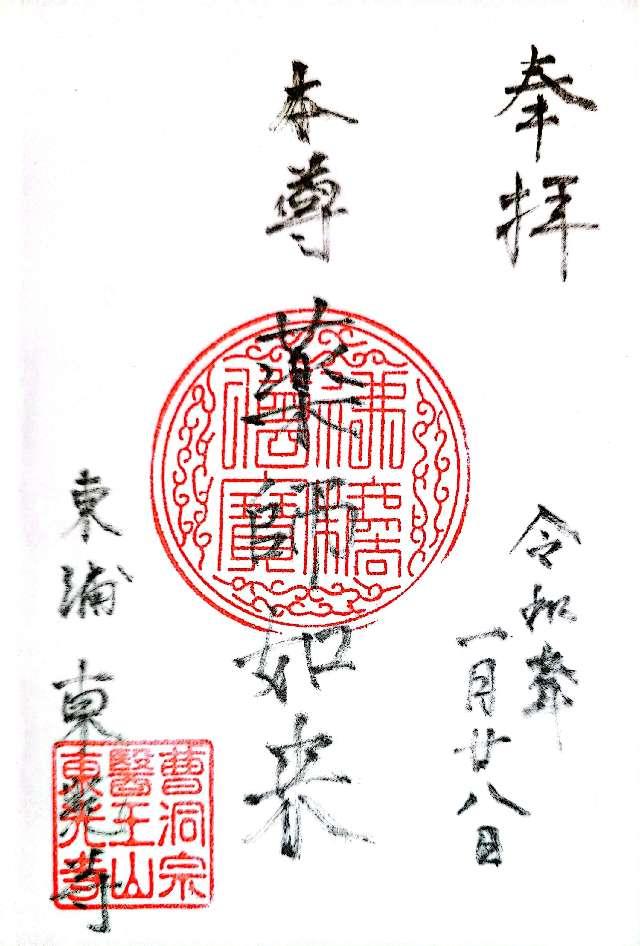 奉拝
令和弐年
一月廿八日
本尊
薬師如来
東浦 東光寺
曹洞宗
醫王山
東光寺